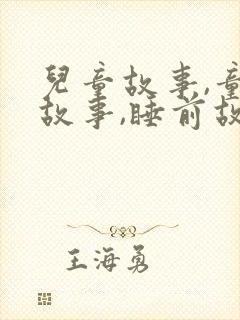 兒童故事,童
故事,睡前故
王海勇